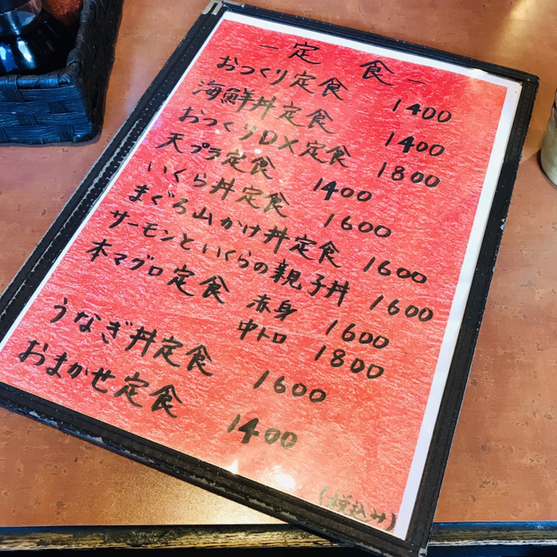 －定食－
おつくり定食 1400
海鮮丼定食 1400
おつくりDX定食 1800
天プラ定食 1400
いくら丼定食 1600
まぐろ山かけ丼定食 1600
サーモンといくらの親子丼 1600
本マグロ定食 赤身 1600
中トロ 1800
うなぎ丼定食 1600
おまかせ定食 1400
(税込み)